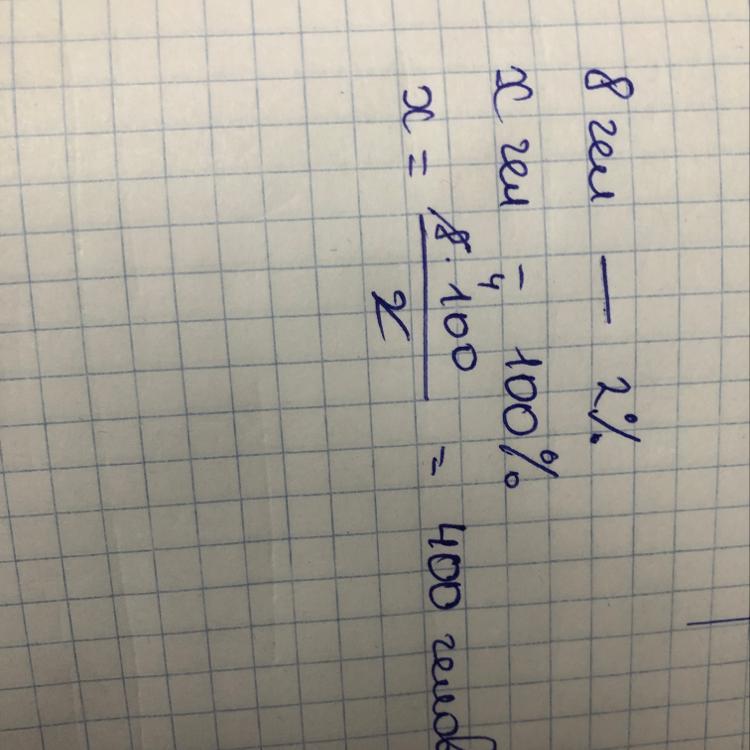 8 чел — 2%
x чел - 100%
x = 8 · 100 / 2 = 400 челов
4